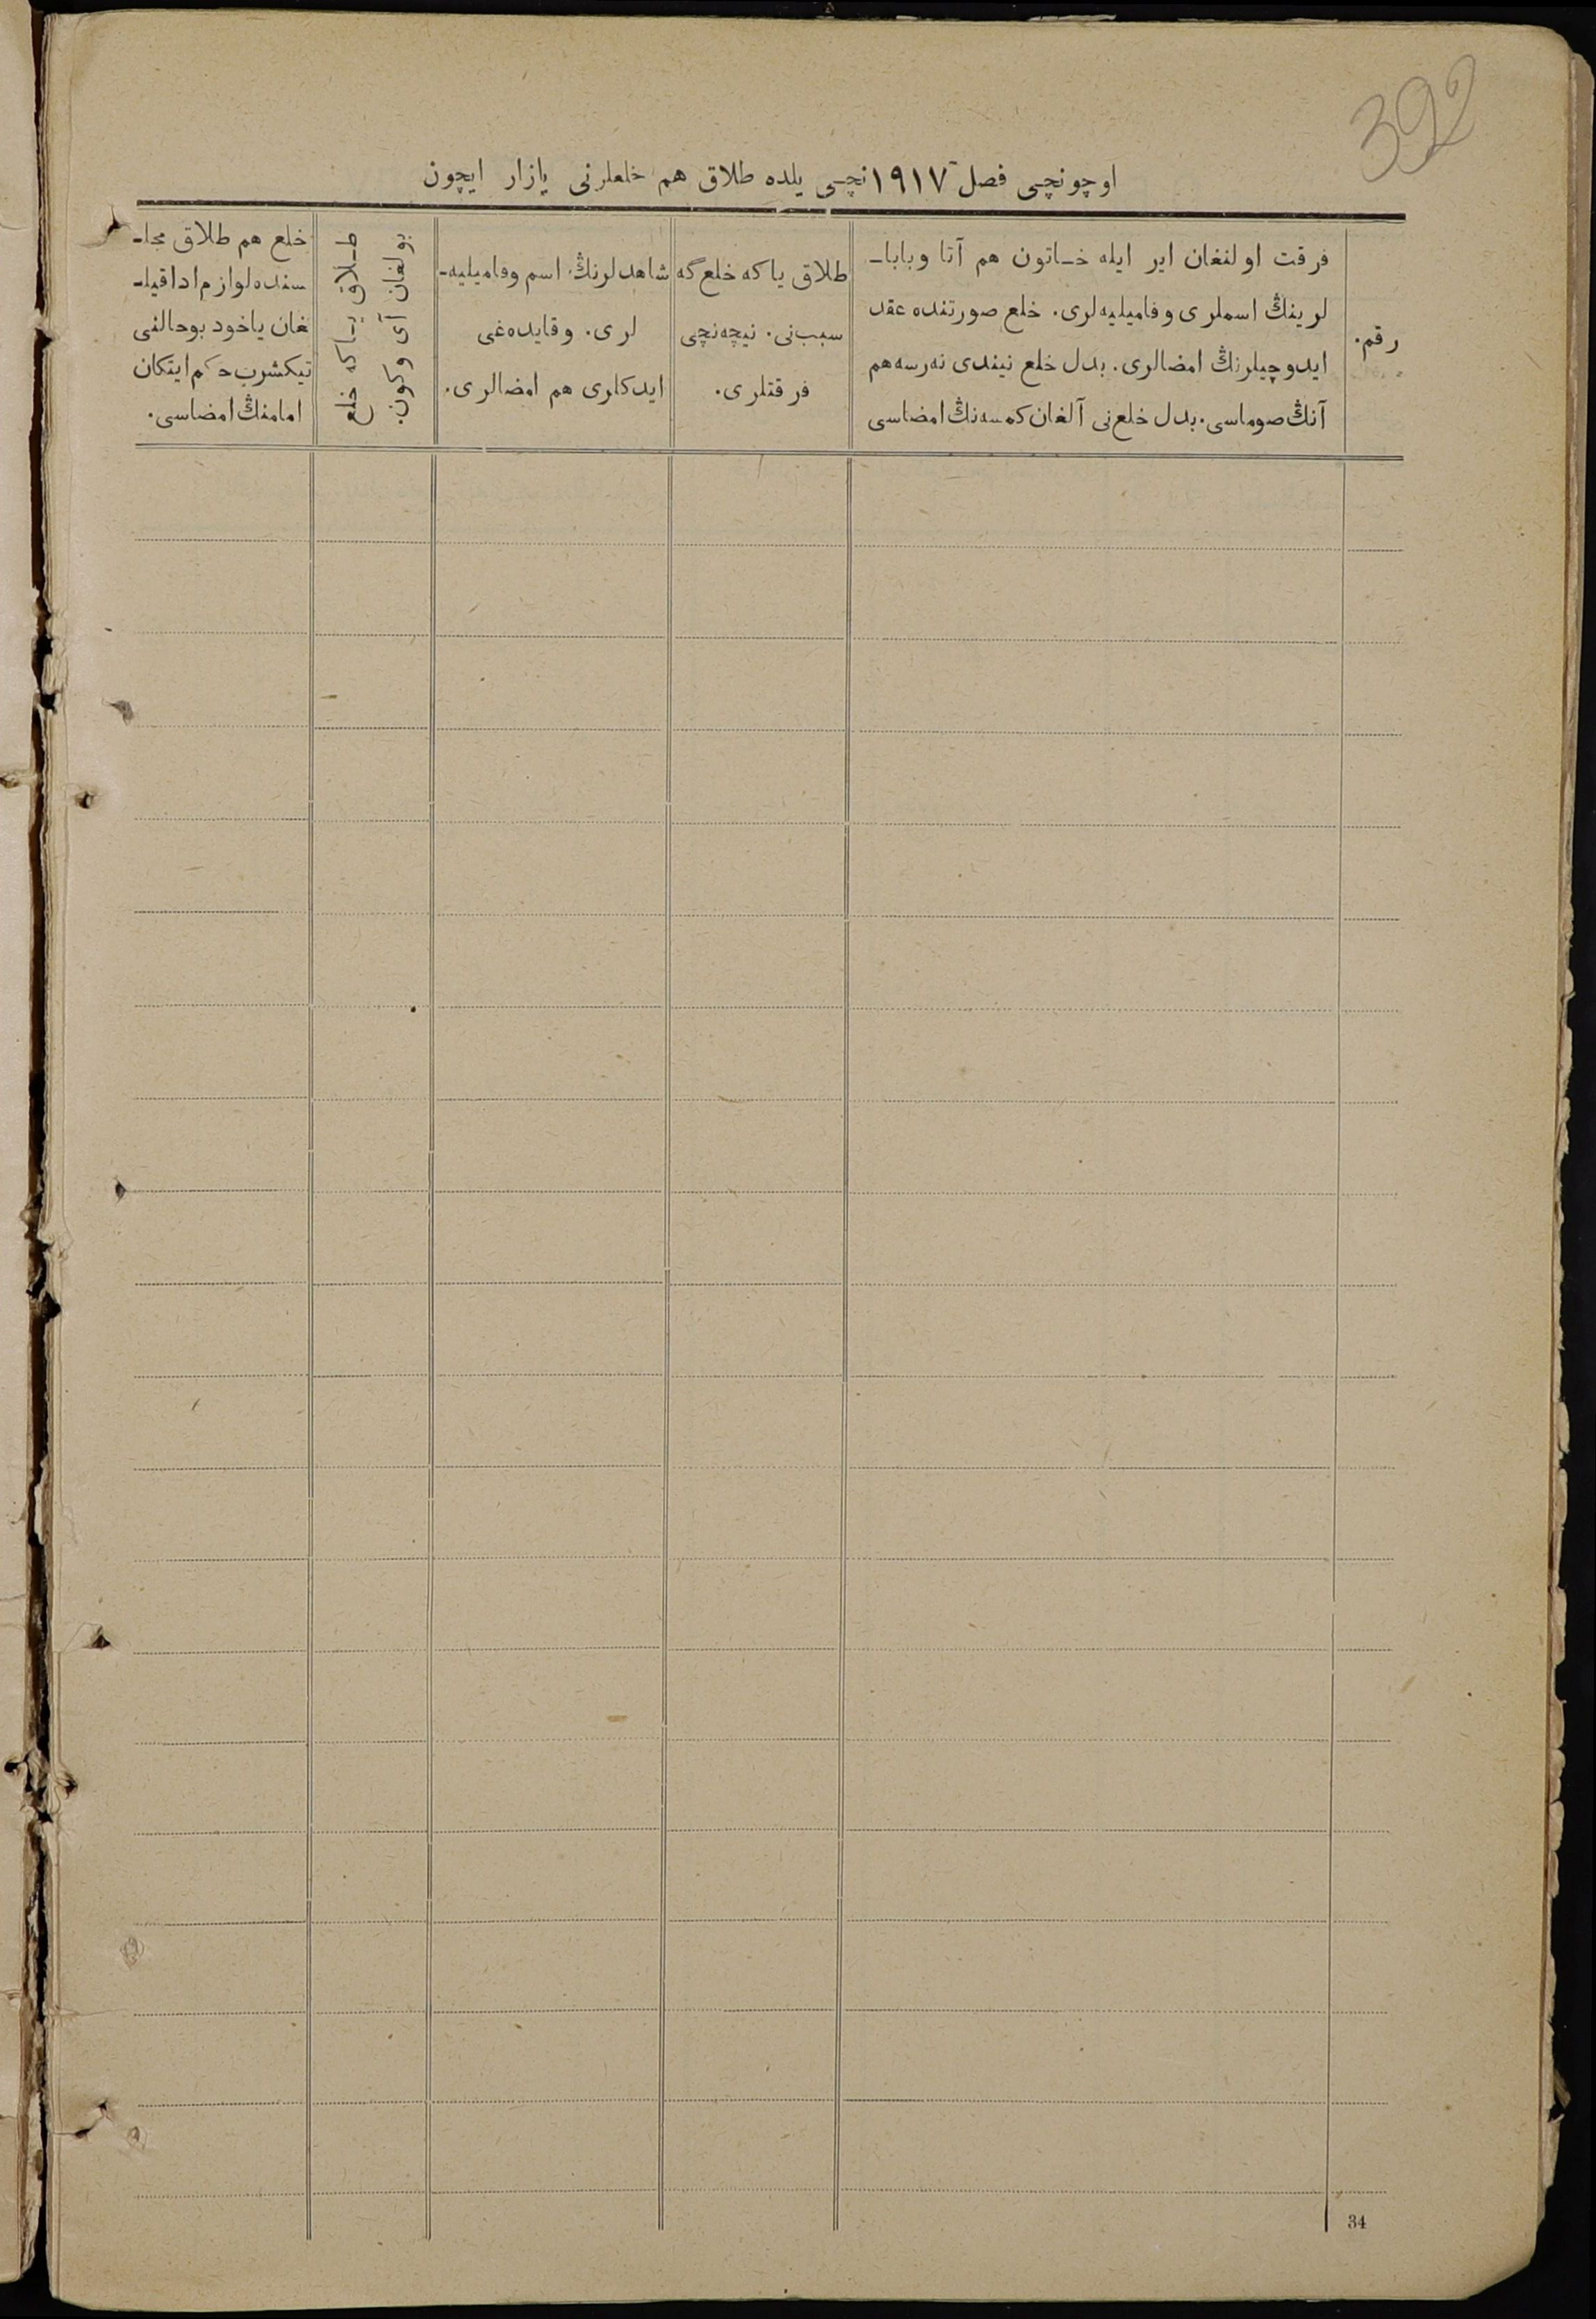 392
اوچونچی فصل ۱۹۱۷نچی یلده طلاق هم خلعلرنی یازار ایچون
رقم.
فرقت اولنغان ایر ایله خـاتون هم آتا وبابا-
لرینڭ اسملری وفامیلیه‌لری. خلع صورتنده عقد
ایدوچیلرنڭ امضالری. بدل خلع نیندی نه‌رسه هم
آنڭ صوماسی. بدل خلع‌نی آلغان کمسه‌نڭ امضاسی
طلاق یاکه خلع‌گه
سبب‌نی. نیچه‌نچی
فرقتلری.
شاهدلرنڭ اسم وفامیلیه-
لری. وقایده‌غی
ایدکلری هم امضالری.
طـلاق یـاکه خلع
بولغان آی وکون.
خلع هم طلاق مجا-
سنده لوازم ادا قیلـ
غان یاخود بوحالنی
تیکشرب حکم ایتکان
امامنڭ امضاسی.
34